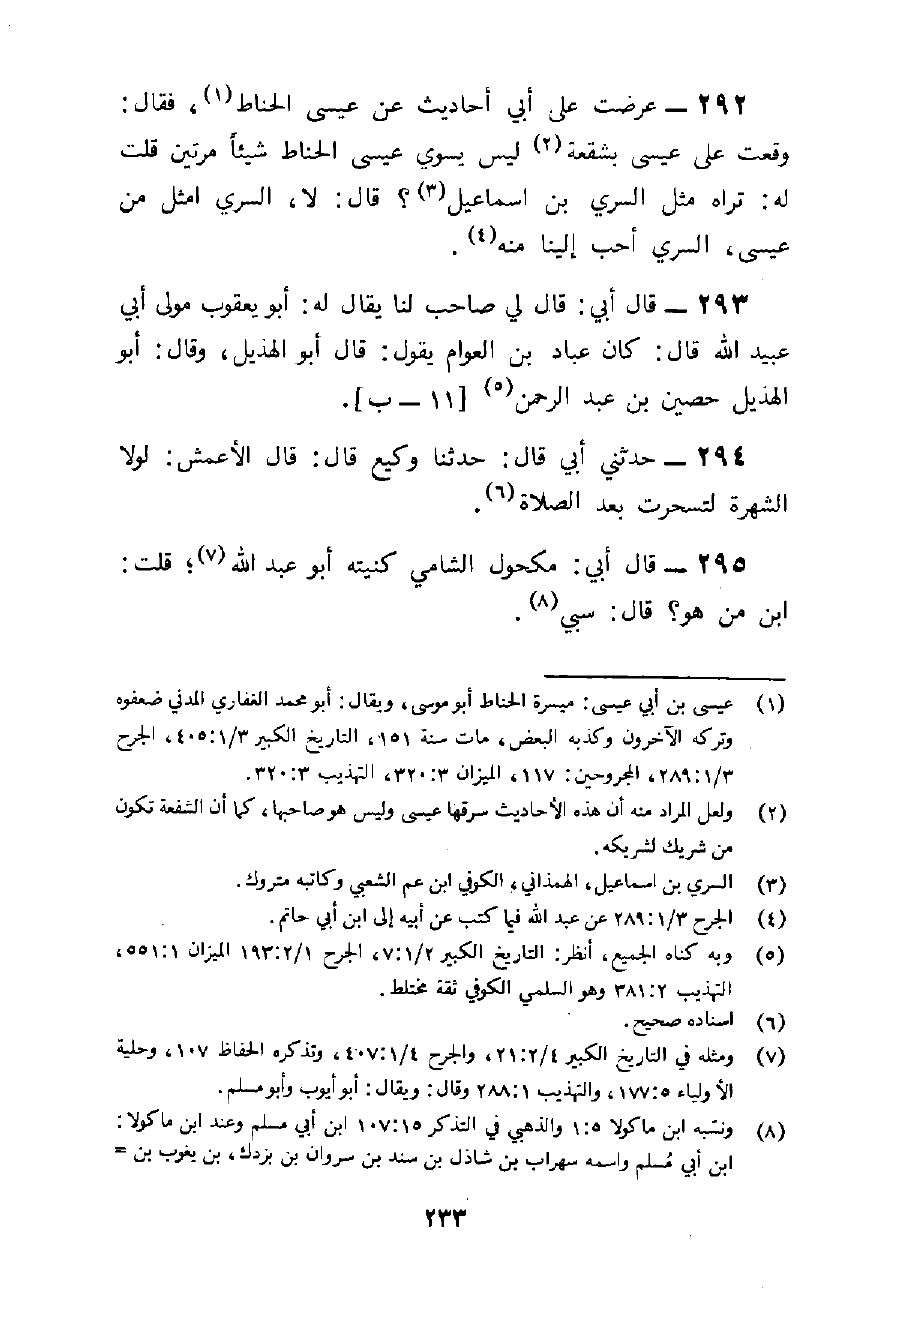 ٢٩٢ ـ عرضت على أبي أحاديث عن عيسى الحناط(١)، فقال:
وقعت على عيسى بشقعة(٢) ليس يسوي عيسى الحناط شيئاً مرتين قلت
له: تراه مثل السري بن اسماعيل(٣)؟ قال: لا، السري امثل من
عيسى، السري أحب إلينا منه(٤).
٢٩٣ ـ قال أبي: قال لي صاحب لنا يقال له: أبو يعقوب مولى أبي
عبيد الله قال: كان عباد بن العوام يقول: قال أبو الهذيل، وقال: أبو
الهذيل حصين بن عبد الرحمن(٥) [١١ ـ ب].
٢٩٤ ـ حدثني أبي قال: حدثنا وكيع قال: قال الأعمش: لولا
الشهرة لتسحرت بعد الصلاة(٦).
٢٩٥ ـ قال أبي: مكحول الشامي كنيته أبو عبد الله(٧)؛ قلت:
ابن من هو؟ قال: سبي(٨).
(١) عيسى بن أبي عيسى: ميسرة الحناط أبو موسى، ويقال: أبو محمد الغفاري المدني ضعفوه
وتركه الآخرون وكذبه البعض، مات سنة ١٥١، التاريخ الكبير ٤٠٥:١/٣، الجرح
٢٨٩:١/٣، المجروحين: ١١٧، الميزان ٣٢٠:٣، التهذيب ٣٢٠:٣.
(٢) ولعل المراد منه أن هذه الأحاديث سرقها عيسى وليس هو صاحبها، كما أن الشفعة تكون
من شريك لشريكه.
(٣) السري بن اسماعيل، الهمذاني، الكوفي ابن عم الشعبي وكاتبه متروك.
(٤) الجرح ٢٨٩:١/٣ عن عبد الله فيما كتب عن أبيه إلى ابن أبي حاتم.
(٥) وبه كناه الجميع، أنظر: التاريخ الكبير ٧:١/٢، الجرح ١٩٣:٢/١ الميزان ٥٥١:١،
التهذيب ٣٨١:٢ وهو السلمي الكوفي ثقة مختلط.
(٦) اسناده صحيح.
(٧) ومثله في التاريخ الكبير ٢١:٢/٤، والجرح ٤٠٧:١/٤، وتذكره الحفاظ ١٠٧، وحلية
الأولياء ١٧٧:٥، والتهذيب ٢٨٨:١ وقال: ويقال: أبو أيوب وأبو مسلم.
(٨) ونسّبه ابن ماكولا ١:٥ والذهبي في التذكر ١٠٧:١٥ ابن أبي مسلم وعند ابن ماكولا:
ابن أبي مُسلم واسمه سهراب بن شاذل بن سند بن سروان بن بزدك، بن يغوب بن =
٢٣٣